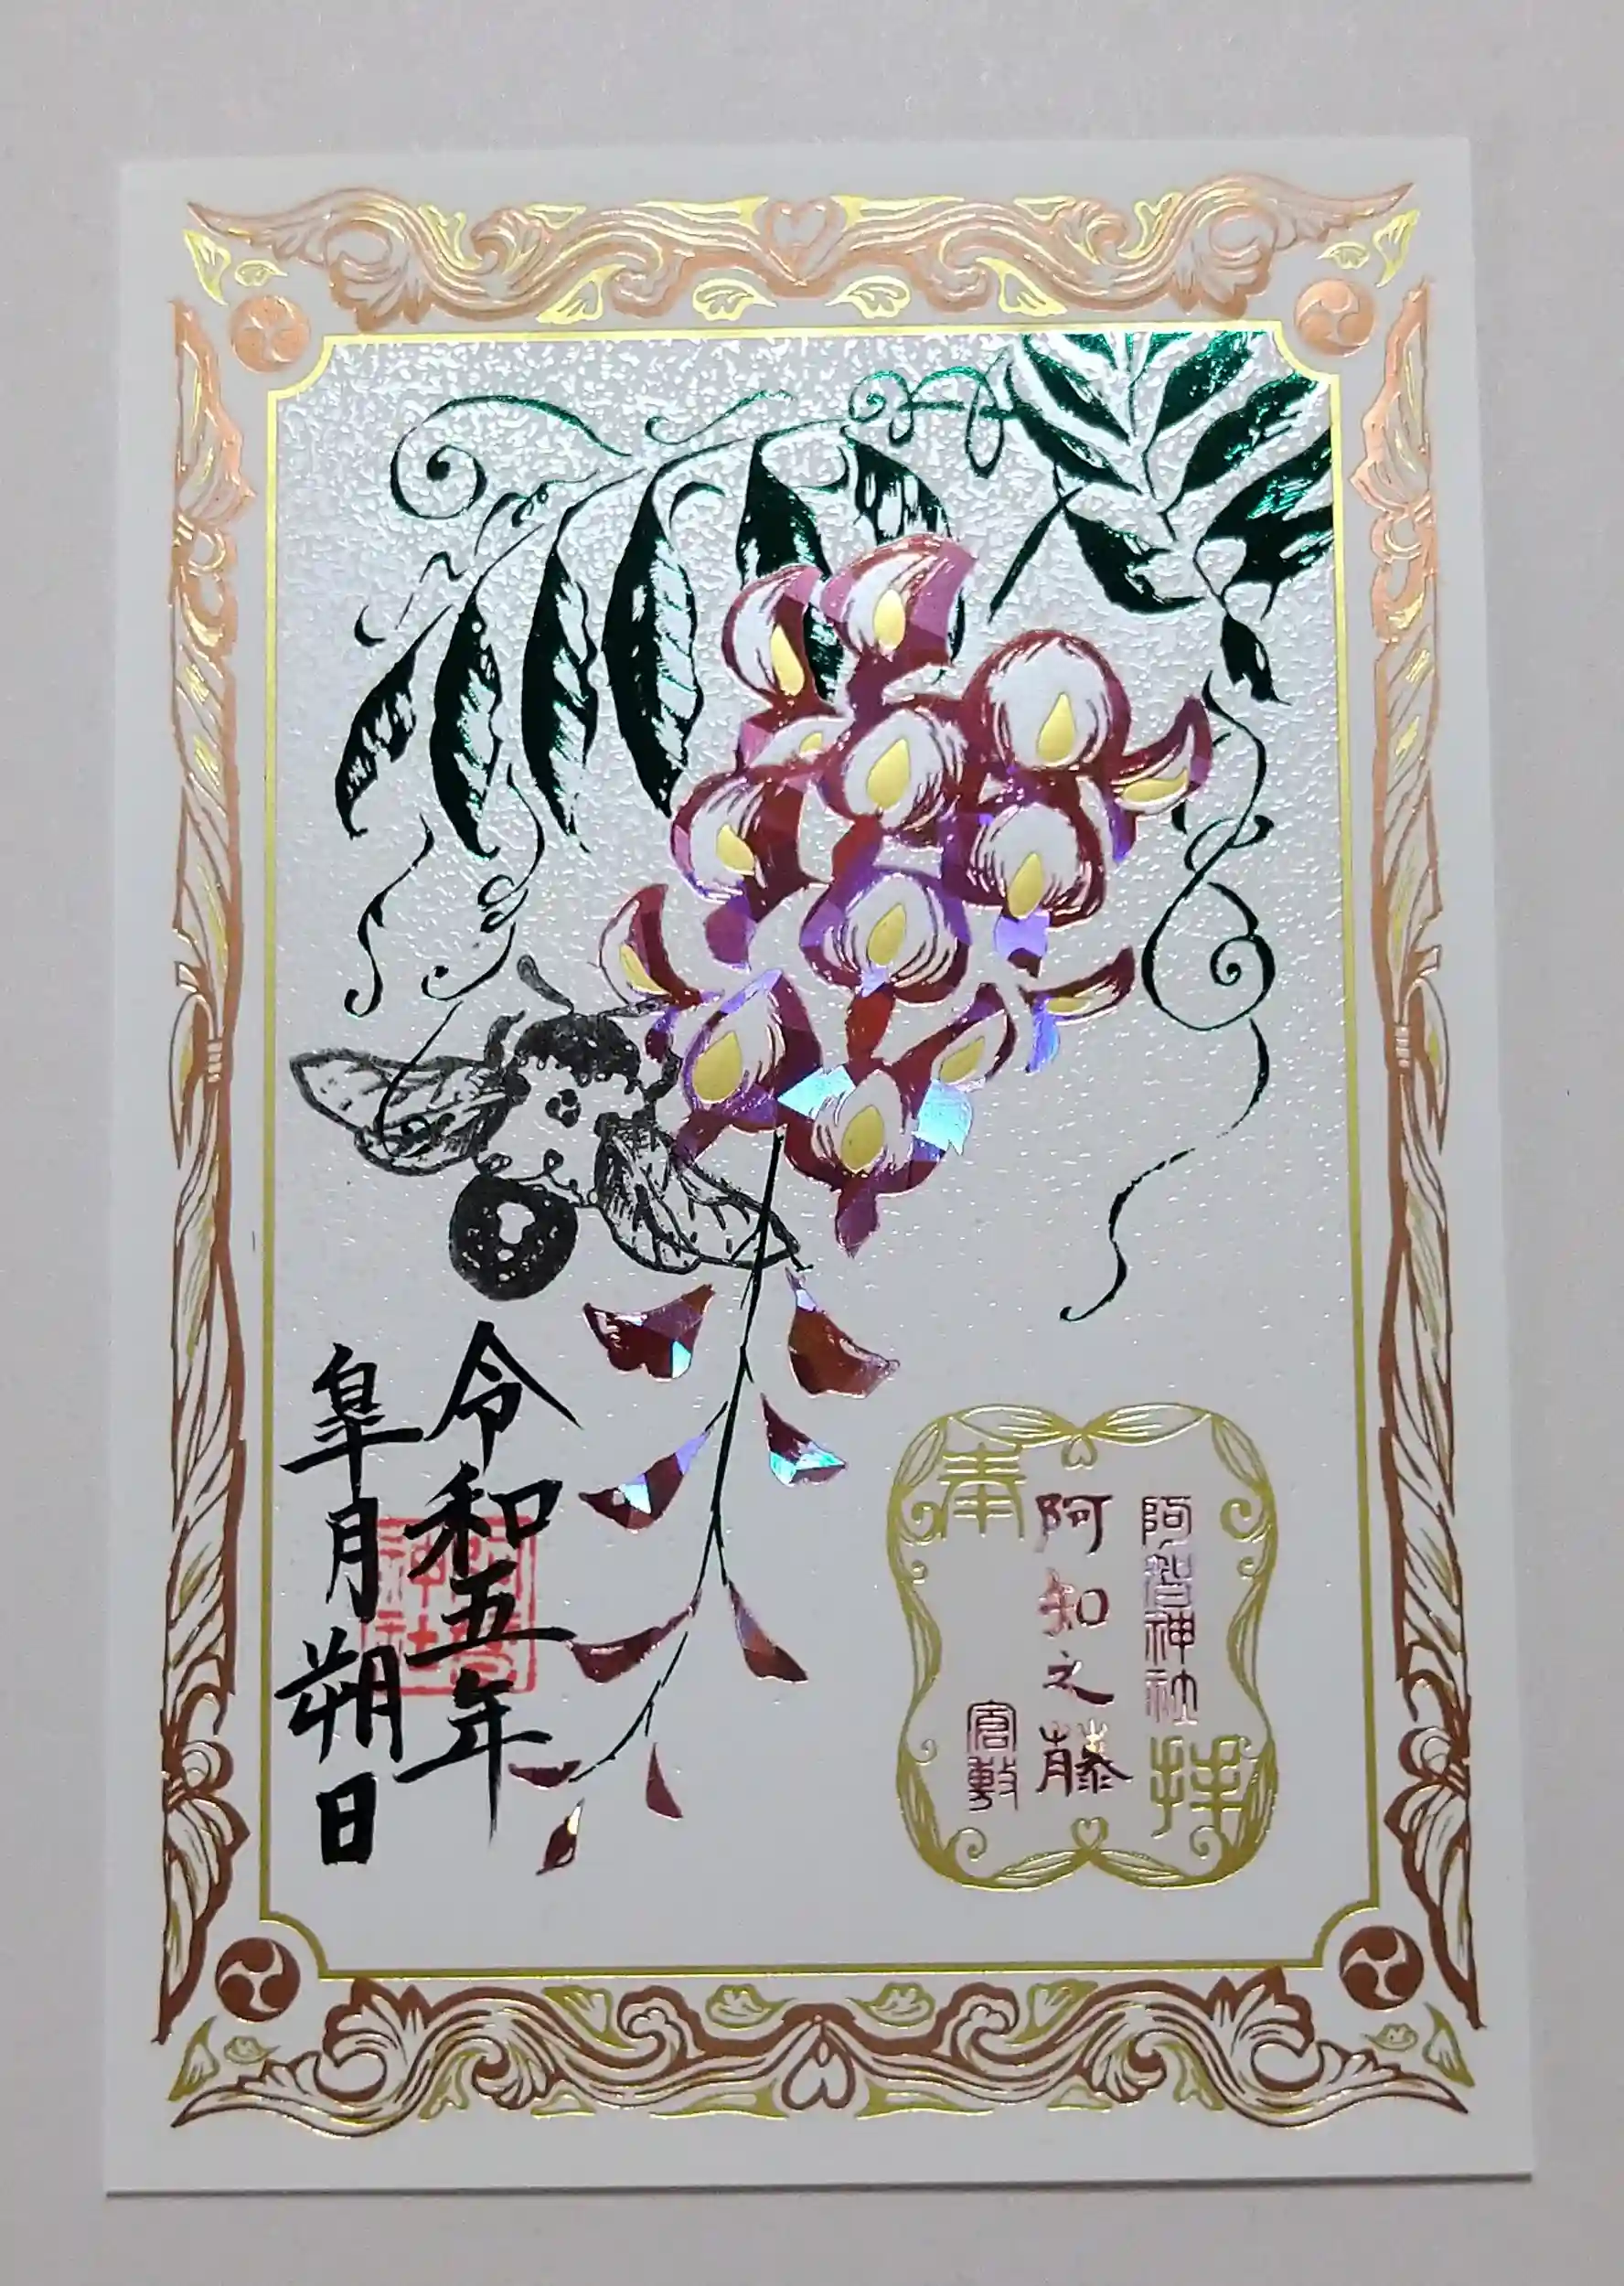 奉拝
阿智神社
阿知之藤
倉敷
令和五年
皐月朔日
阿智神社